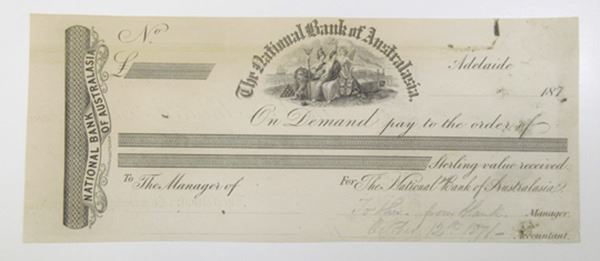 No.
£
The National Bank of Australasia.
Adelaide 187
NATIONAL BANK OF AUSTRALASIA
On Demand pay to the order of
Sterling value received
To The Manager of
For The National Bank of Australasia.
Manager.
12th 1871
Accountant.